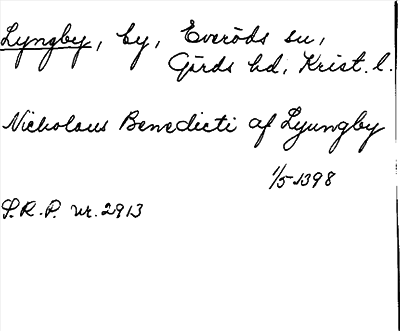 Lyngby, by, Everöds sn,
Gärds hd, Krist. l.
Nicholaus Benedicti af Lyungby
1/5 1398
S.R.P. nr. 2913